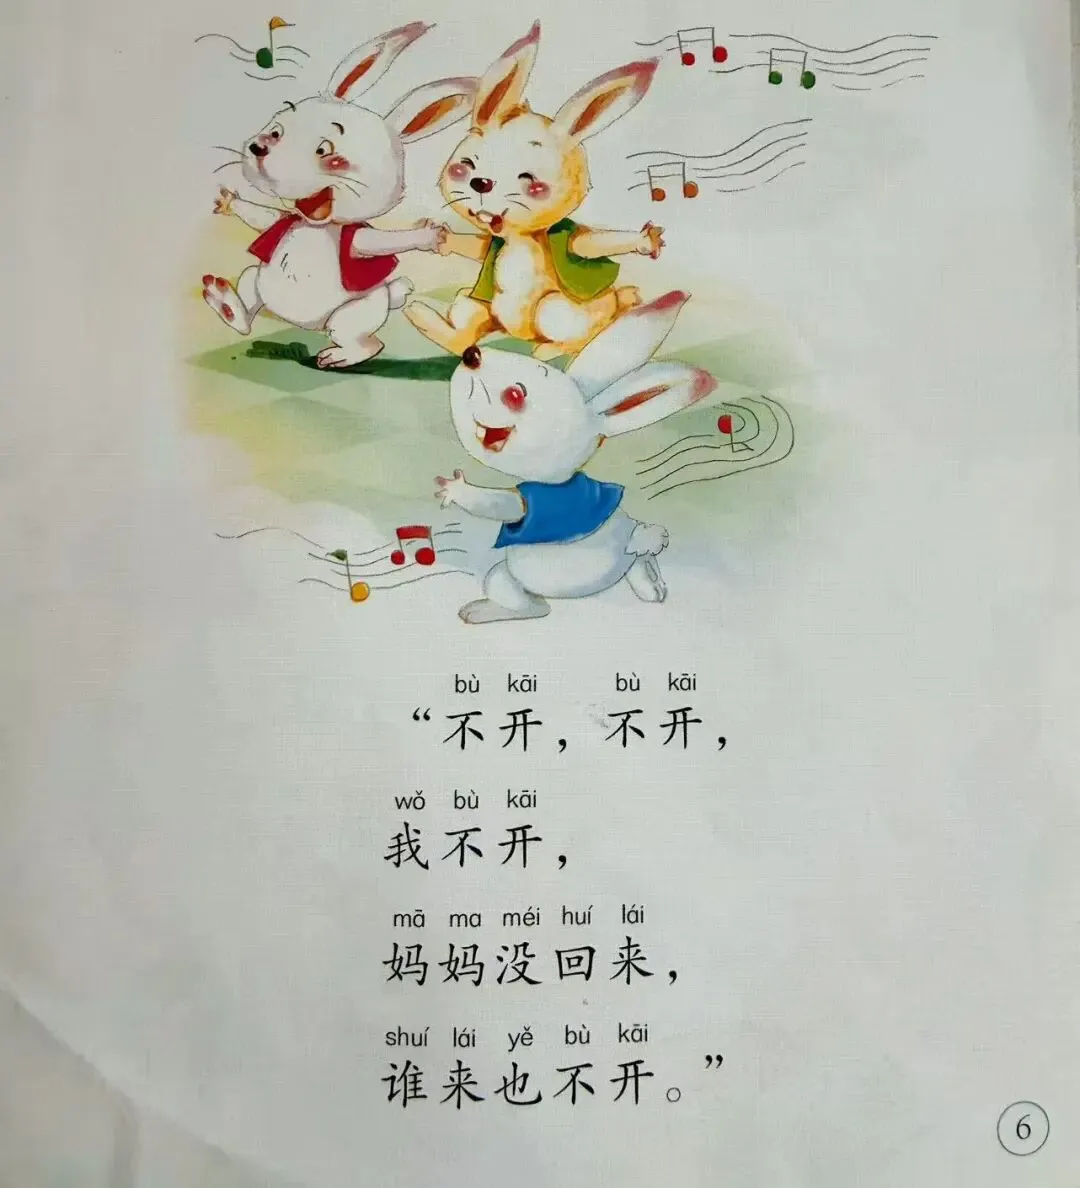 bù kāi bù kāi
“不开，不开，
wǒ bù kāi
我不开，
mā ma méi huí lái
妈妈没回来，
shuí lái yě bù kāi
谁来也不开。”
6